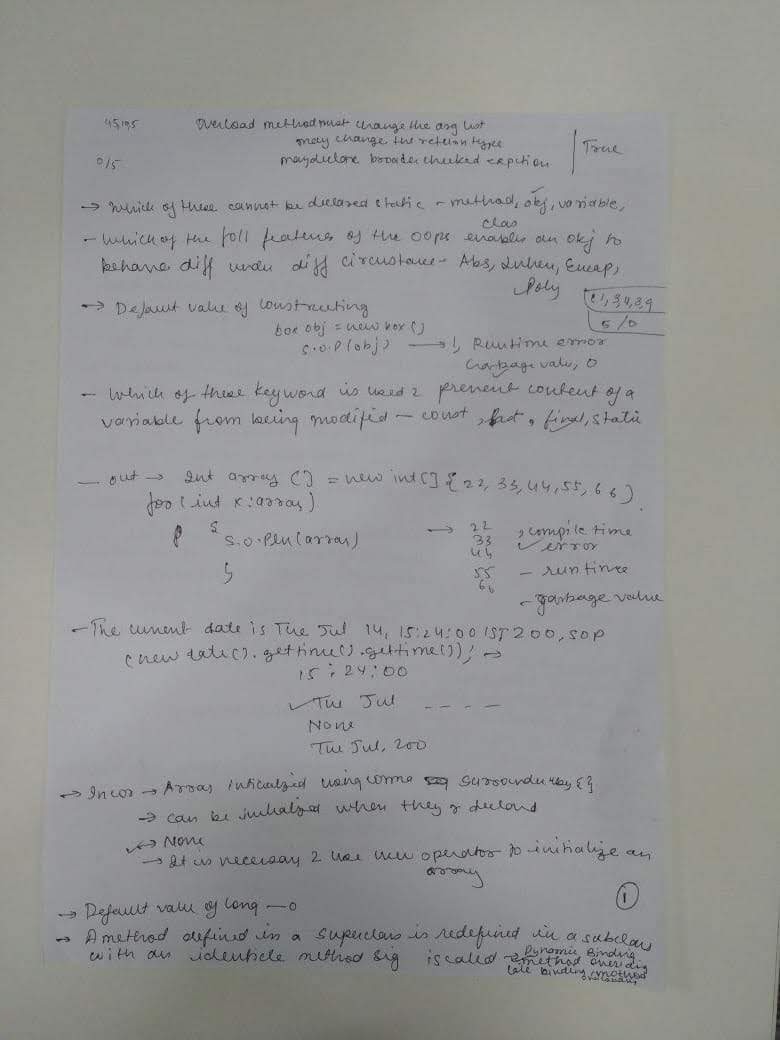 45,195 Overload method must change the arg list
may change the return types
0/5 may declare broader checked exption | True
→ Which of these cannot be declared static - method, obj, variable,
clas
- Which of the foll features of the OOPs enables an obj to
behave diff under diff circustance - Abs, Inheri, Encap,
Poly
→ Default value of constructing
box obj = new box()
S.O.P(obj) → 1, Runtime error
Garbage value, 0
5/0
- Which of these keyword is used 2 prevent content of a
variable from being modified - const, , final, static
- out → Int array [] = new int[] {22, 33, 44, 55, 66}
for (int x: array)
{
S.O.Pln(array) → 22
33
44
55
66
, compile time
error
- runtime
- garbage value
}
- The current date is Tue Jul 14, 15:24:00 IST 200, SOP
(new date().gettime().gettime()); →
15:24:00
Tue Jul - - - -
None
Tue Jul, 200
→ Incor → Array inticalzed using comma surroundes by {}
→ can be initialized when they r declard
→ None
→ It is necessary 2 use new operator to initialize an
array
①
→ Default value of long - 0
→ A method defined in a superclass is redefined in a subclass
with an identicle method sig is called → Dynamic Binding,
method overiding
late binding, method